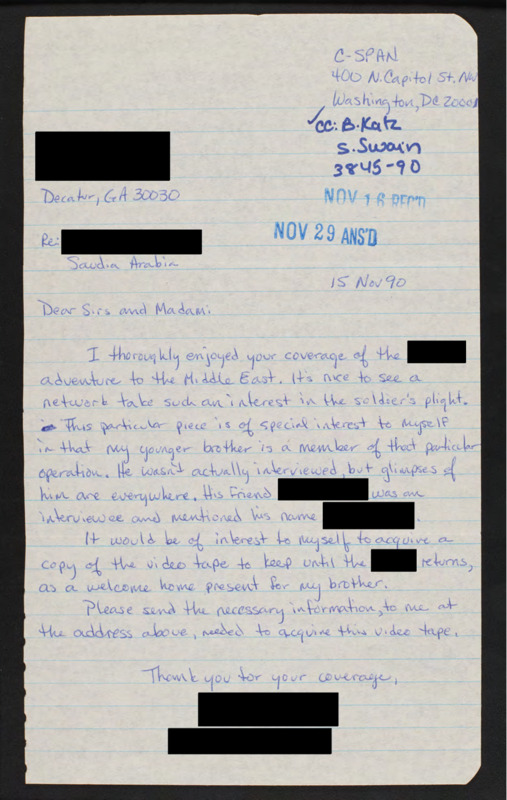 C-SPAN
400 N. Capitol St. NW
Washington, DC 20001
✓cc: B. Katz
S. Swain
3845-90
Decatur, GA 30030
NOV 16 REC'D
NOV 29 ANS'D
Re:
Saudia Arabia
15 Nov 90
Dear Sirs and Madam:
I thoroughly enjoyed your coverage of the
adventure to the Middle East. It's nice to see a
network take such an interest in the soldier's plight.
This particular piece is of special interest to myself
in that my younger brother is a member of that particular
operation. He wasn't actually interviewed, but glimpses of
him are everywhere. His friend was an
interviewee and mentioned his name .
It would be of interest to myself to acquire a
copy of the video tape to keep until the returns,
as a welcome home present for my brother.
Please send the necessary information, to me at
the address above, needed to acquire this video tape.
Thank you for your coverage,